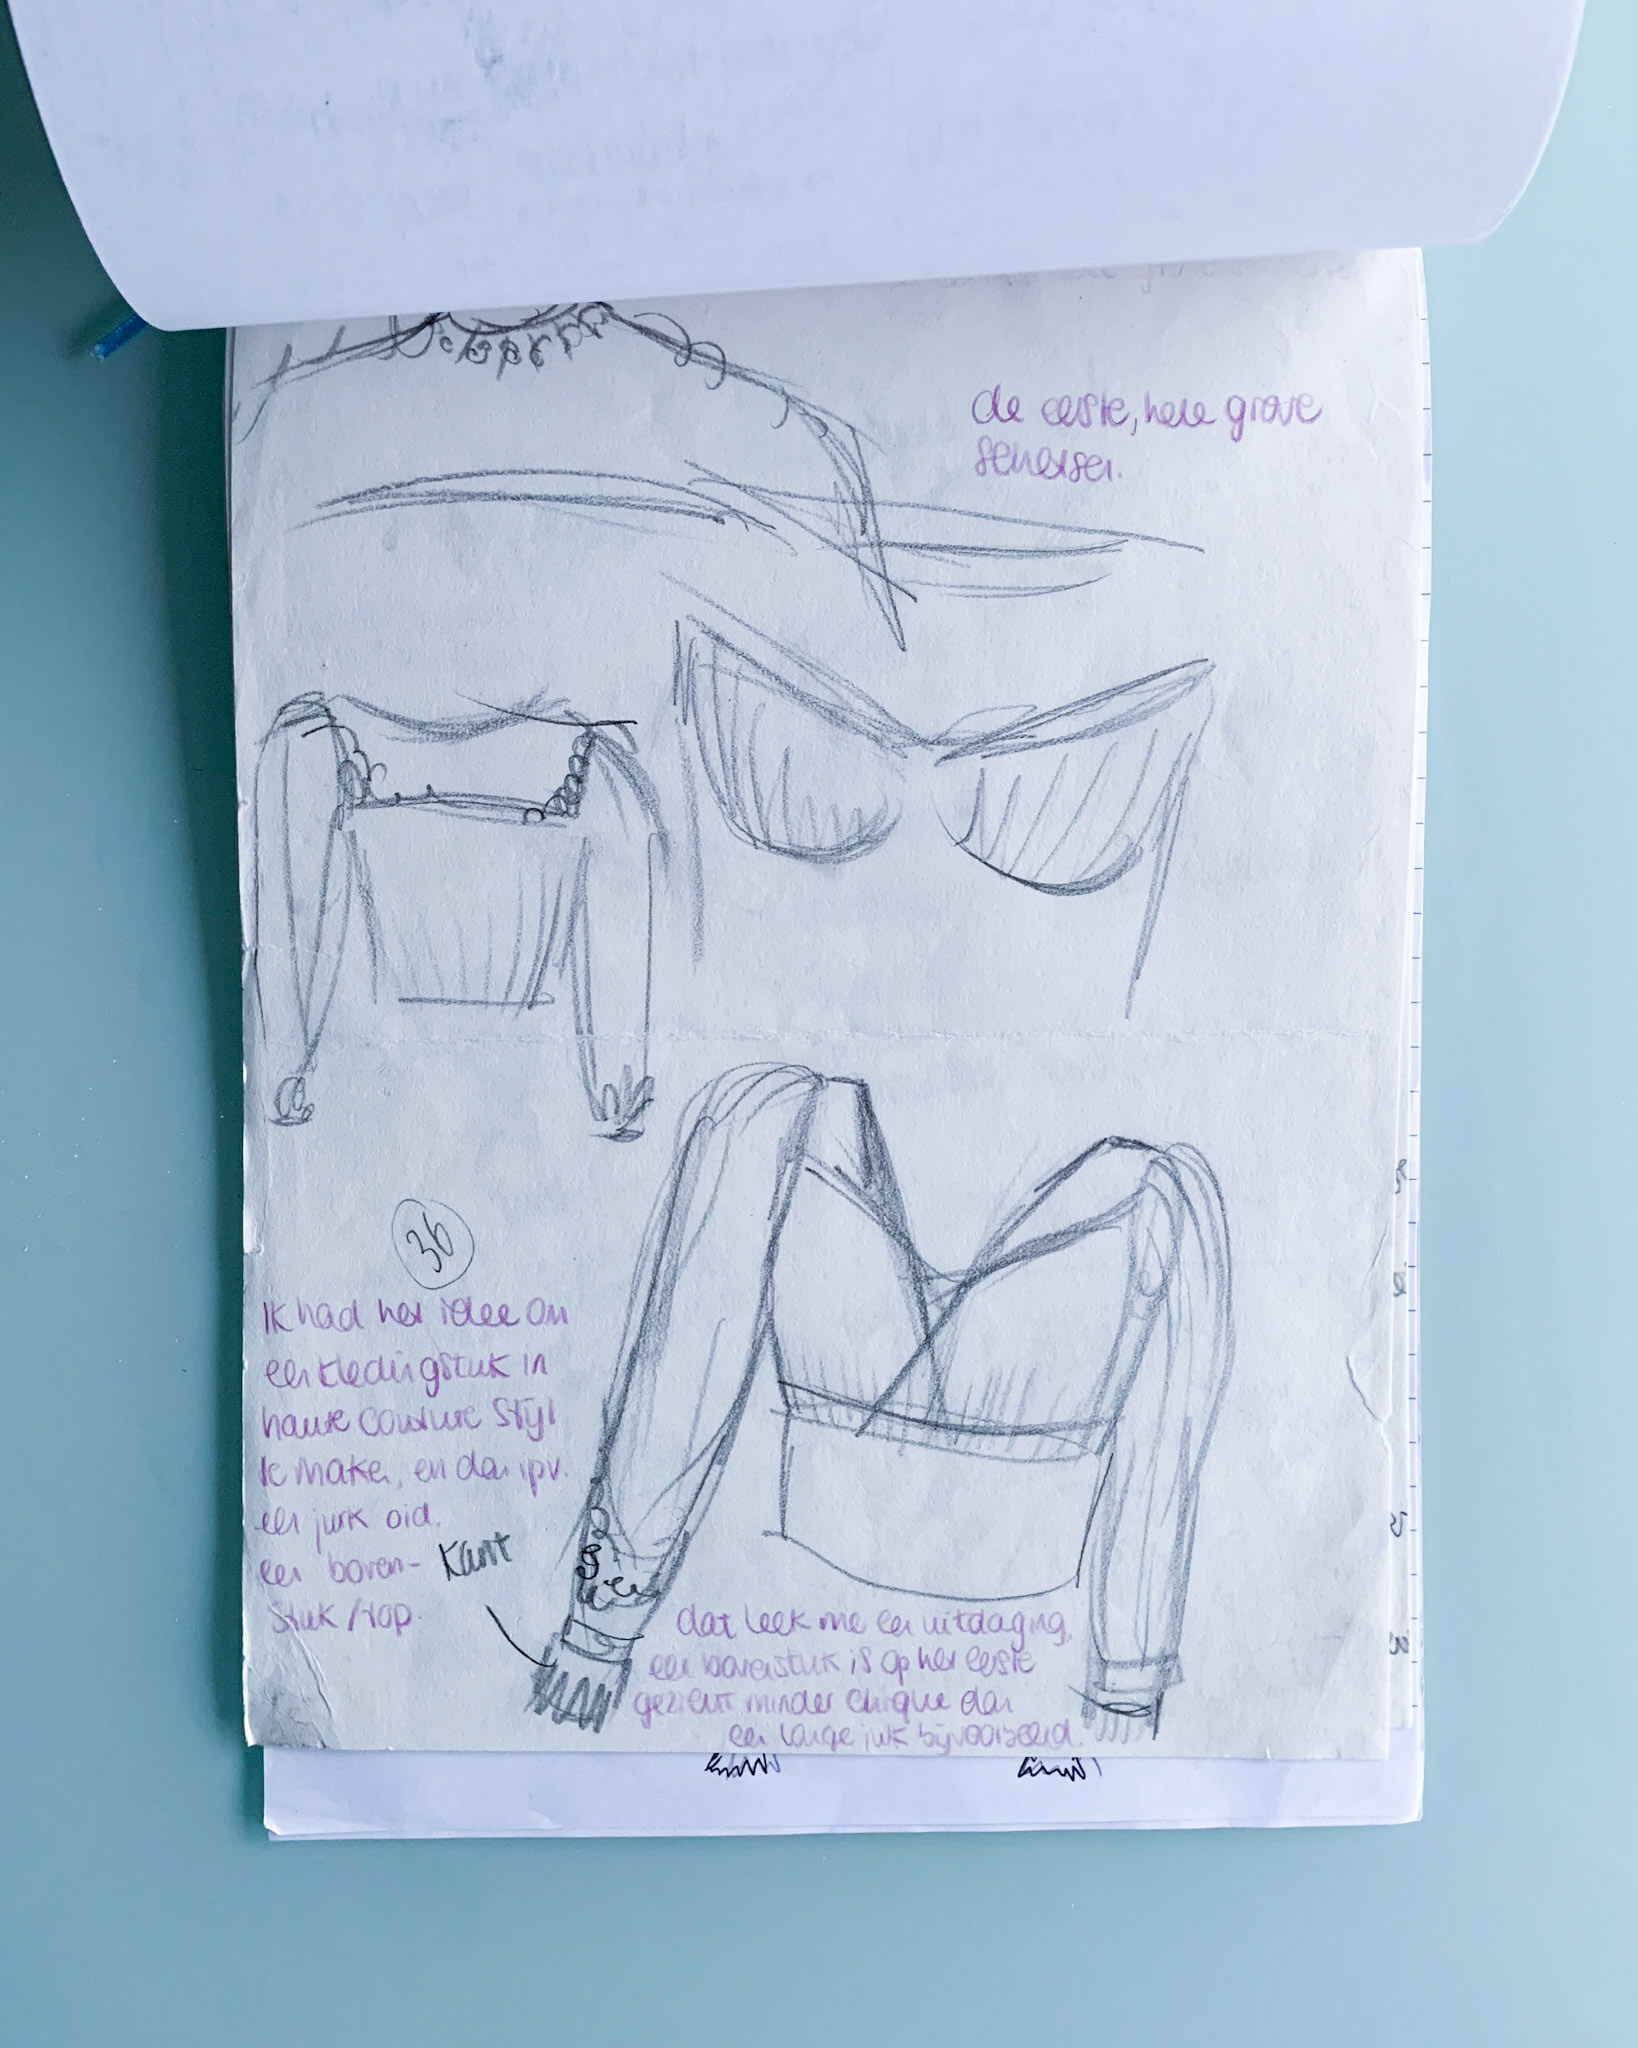 de eerste, hele grove
schetsen.
3b
Ik had het idee om
een kledingstuk in
haute couture stijl
te maken, en dan ipv.
een jurk oid.
een boven-
stuk/top.
Kant
dat leek me een uitdaging,
een bovenstuk is op het eerste
gezicht minder chique dan
een lange jurk bijvoorbeeld.